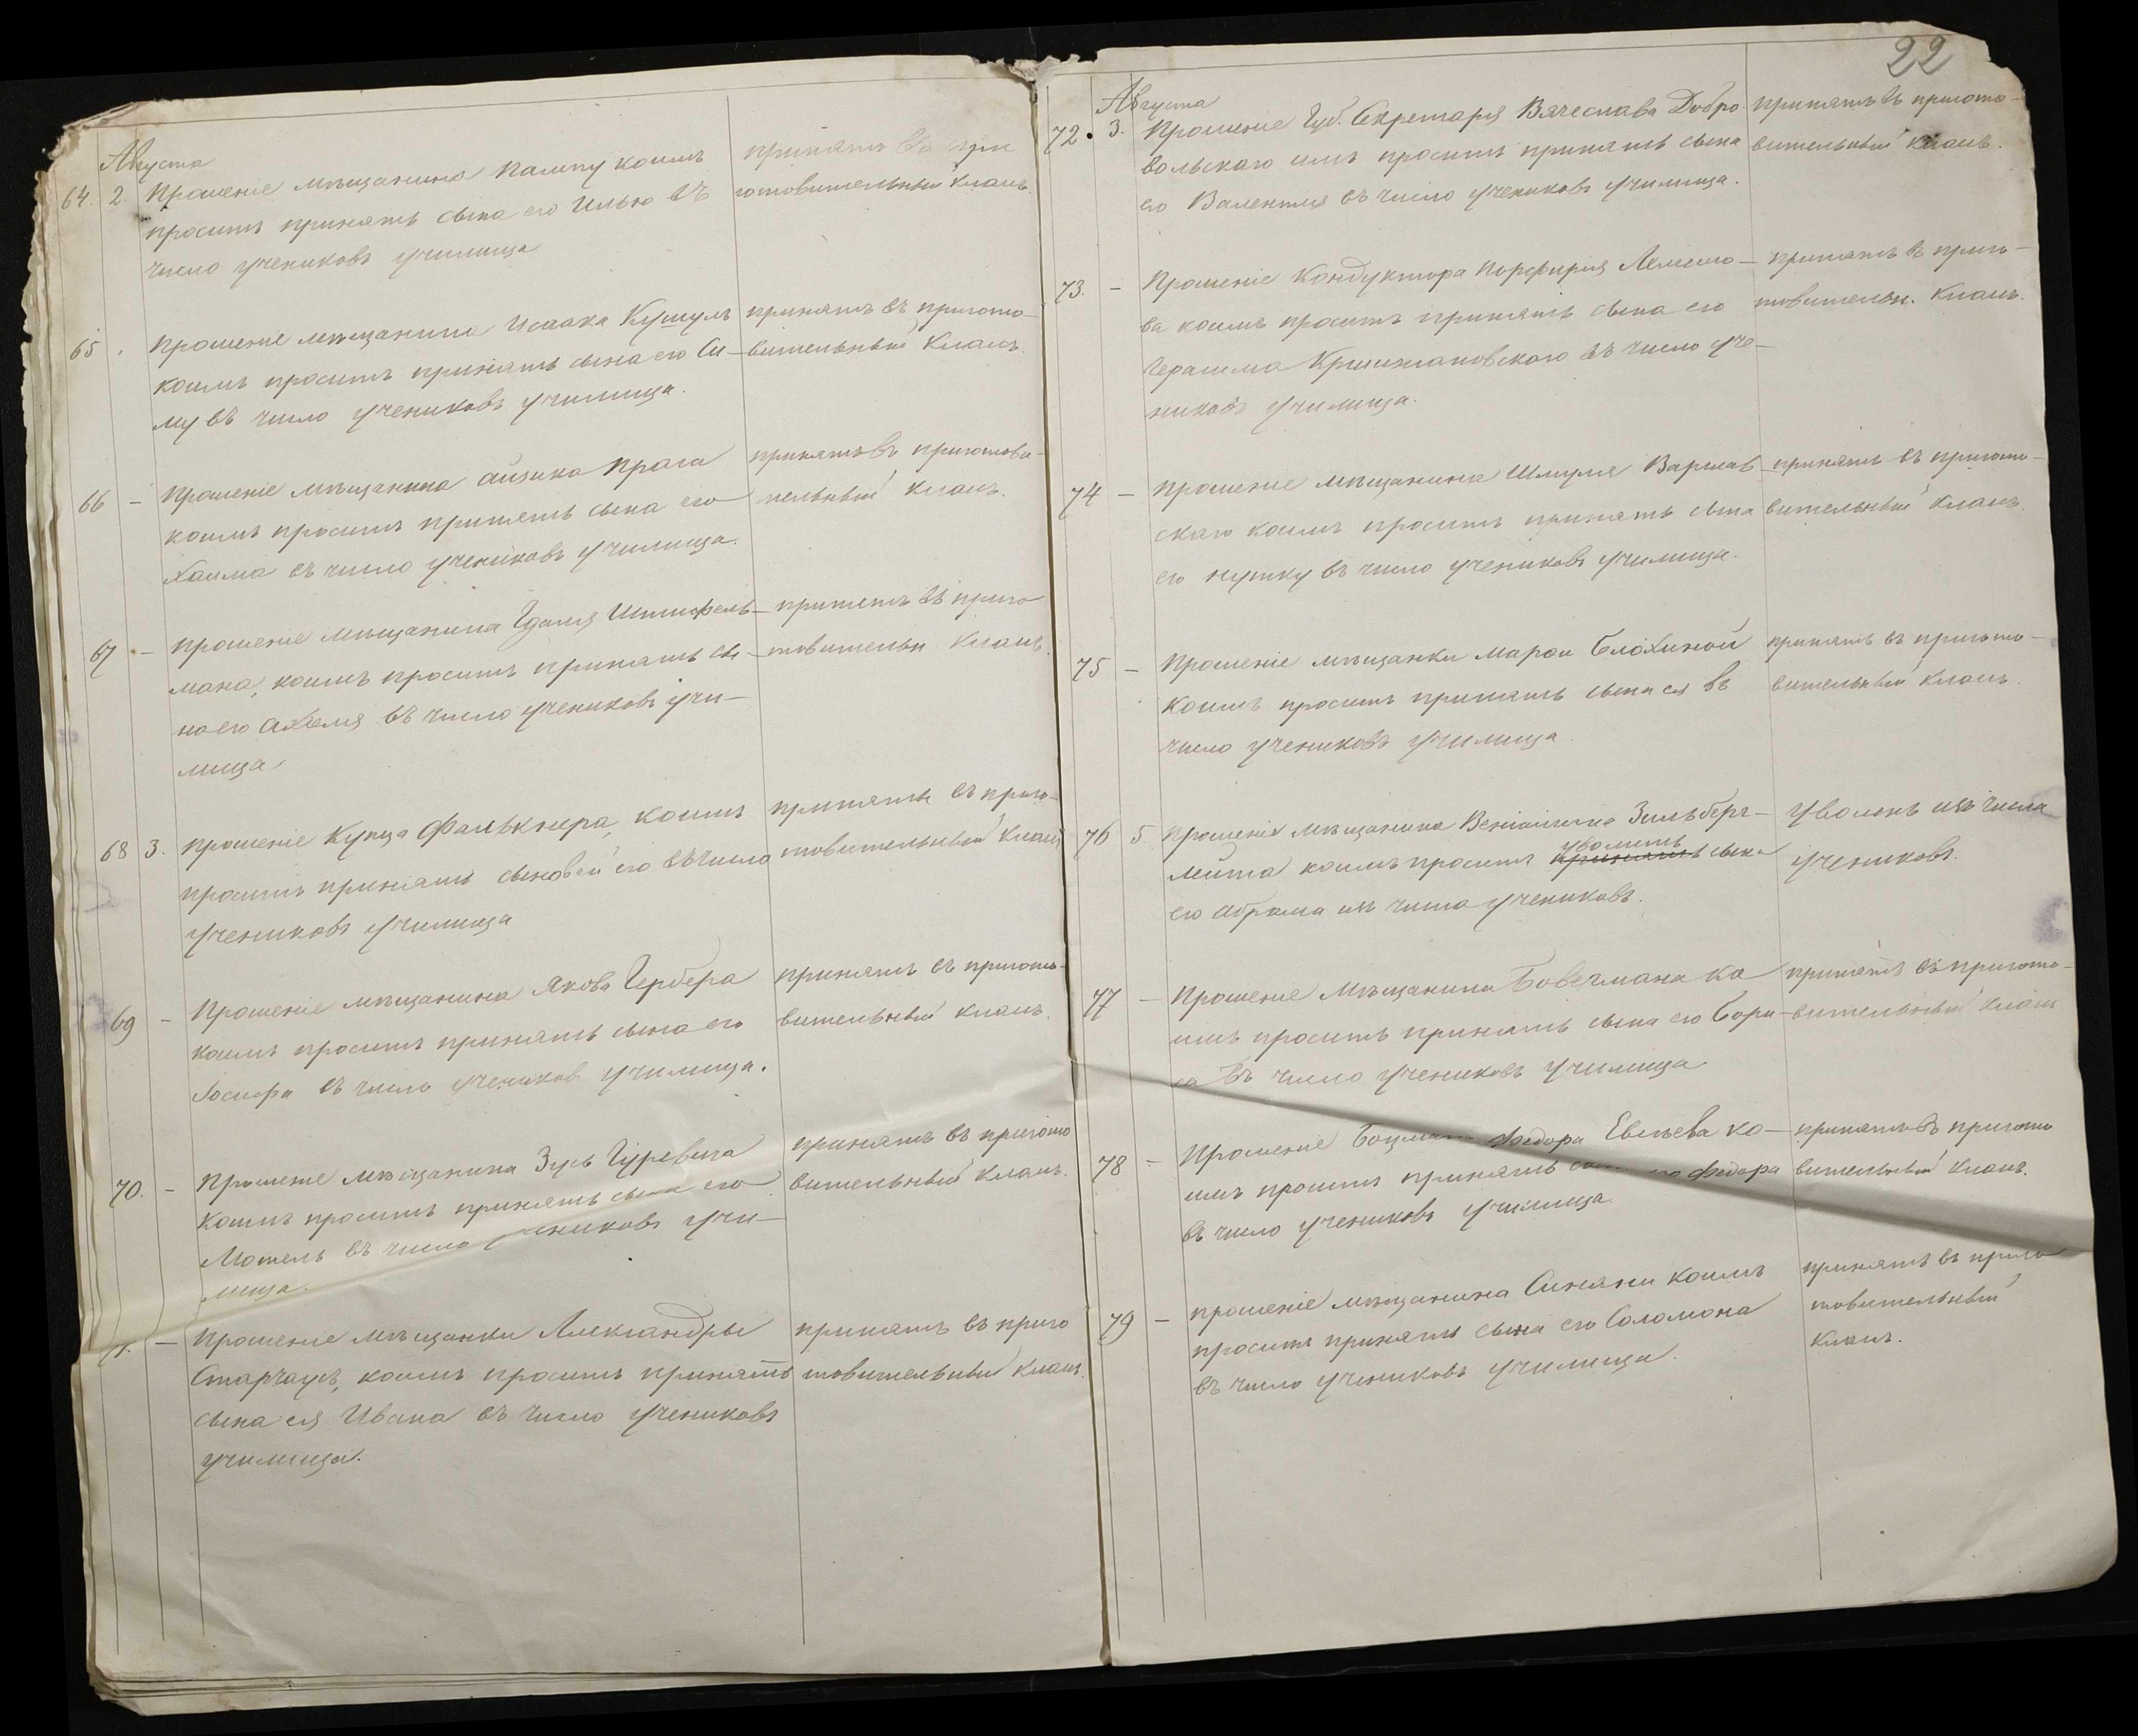 Августа
64. 2. Прошеніе мѣщанина Пампу коимъ
проситъ принять сына его Илью въ
число учениковъ училища
принятъ въ при
готовительный классъ.
65. Прошеніе мѣщанина Исаака Кушуль
коимъ проситъ принять сына его Си–
му въ число учениковъ училища.
принятъ въ пригото–
вительный классъ.
66 – Прошеніе мѣщанина Айзика Прага
коимъ проситъ принять сына его
Хаима въ число учениковъ училища.
принятъ въ приготови–
тельный классъ.
67 – Прошеніе мѣщанина Гдаля
мана, коимъ проситъ принять сы–
на его въ число учениковъ учи–
лища
принятъ въ приго
товительн. классъ.
68 3. Прошеніе Купца Фальккера, коимъ
проситъ принять сыновей его въ число
учениковъ училища
приняты въ приго–
товительный классъ
69 – Прошеніе мѣщанина Якова Гербера
коимъ проситъ принять сына его
Іосифа въ число учениковъ училища.
принятъ въ пригото–
вительный классъ.
70. – Прошеніе мѣщанина Зусь Гуревича
коимъ проситъ принять сына его
Мотель въ число учениковъ учи–
лища.
принятъ въ пригото
вительный классъ.
71. – Прошеніе мѣщанки Александры
Старчаусъ, коимъ проситъ принять
сына ея Ивана въ число учениковъ
училища.
принятъ въ приго
товительный классъ.
22
Августа
72. 3. Прошеніе Губ. Секретаря Вячеслава Добро–
вольскаго имъ проситъ принять сына
его Валентія въ число учениковъ училища.
принятъ въ пригото–
вительный классъ.
73. – Прошеніе Кондуктора Порфирія
ва коимъ проситъ принять сына его
Герасима въ число уче–
никовъ училища.
принятъ въ приго–
товительн. классъ.
74 – Прошеніе мѣщанина Шмуля Варшав–
скаго коимъ проситъ принять сына
его Нушку въ число учениковъ училища.
принятъ въ пригото–
вительный классъ.
75 – Прошеніе мѣщанки Маріи Блохиной
коимъ проситъ принять сына ея въ
число учениковъ училища
принятъ въ пригото–
вительный классъ.
76 5 Прошеніе мѣщанина Веніамина Зильбер–
мита коимъ проситъ принять уволить сына
его Абрама изъ числа учениковъ.
Уволенъ изъ числа
учениковъ.
77 – Прошеніе Мѣщанина Бовермана ко
имъ проситъ принять сына его Бори–
са въ число учениковъ училища
принятъ въ пригото–
вительный классъ
78 – Прошеніе Федора Евсѣева ко–
имъ проситъ принять его Федора
въ число учениковъ училища.
принятъ въ пригото
вительный классъ.
79 – Прошеніе мѣщанина Синяни коимъ
проситъ принять сына его Соломона
въ число учениковъ училища.
принятъ въ приго
товительный
классъ.